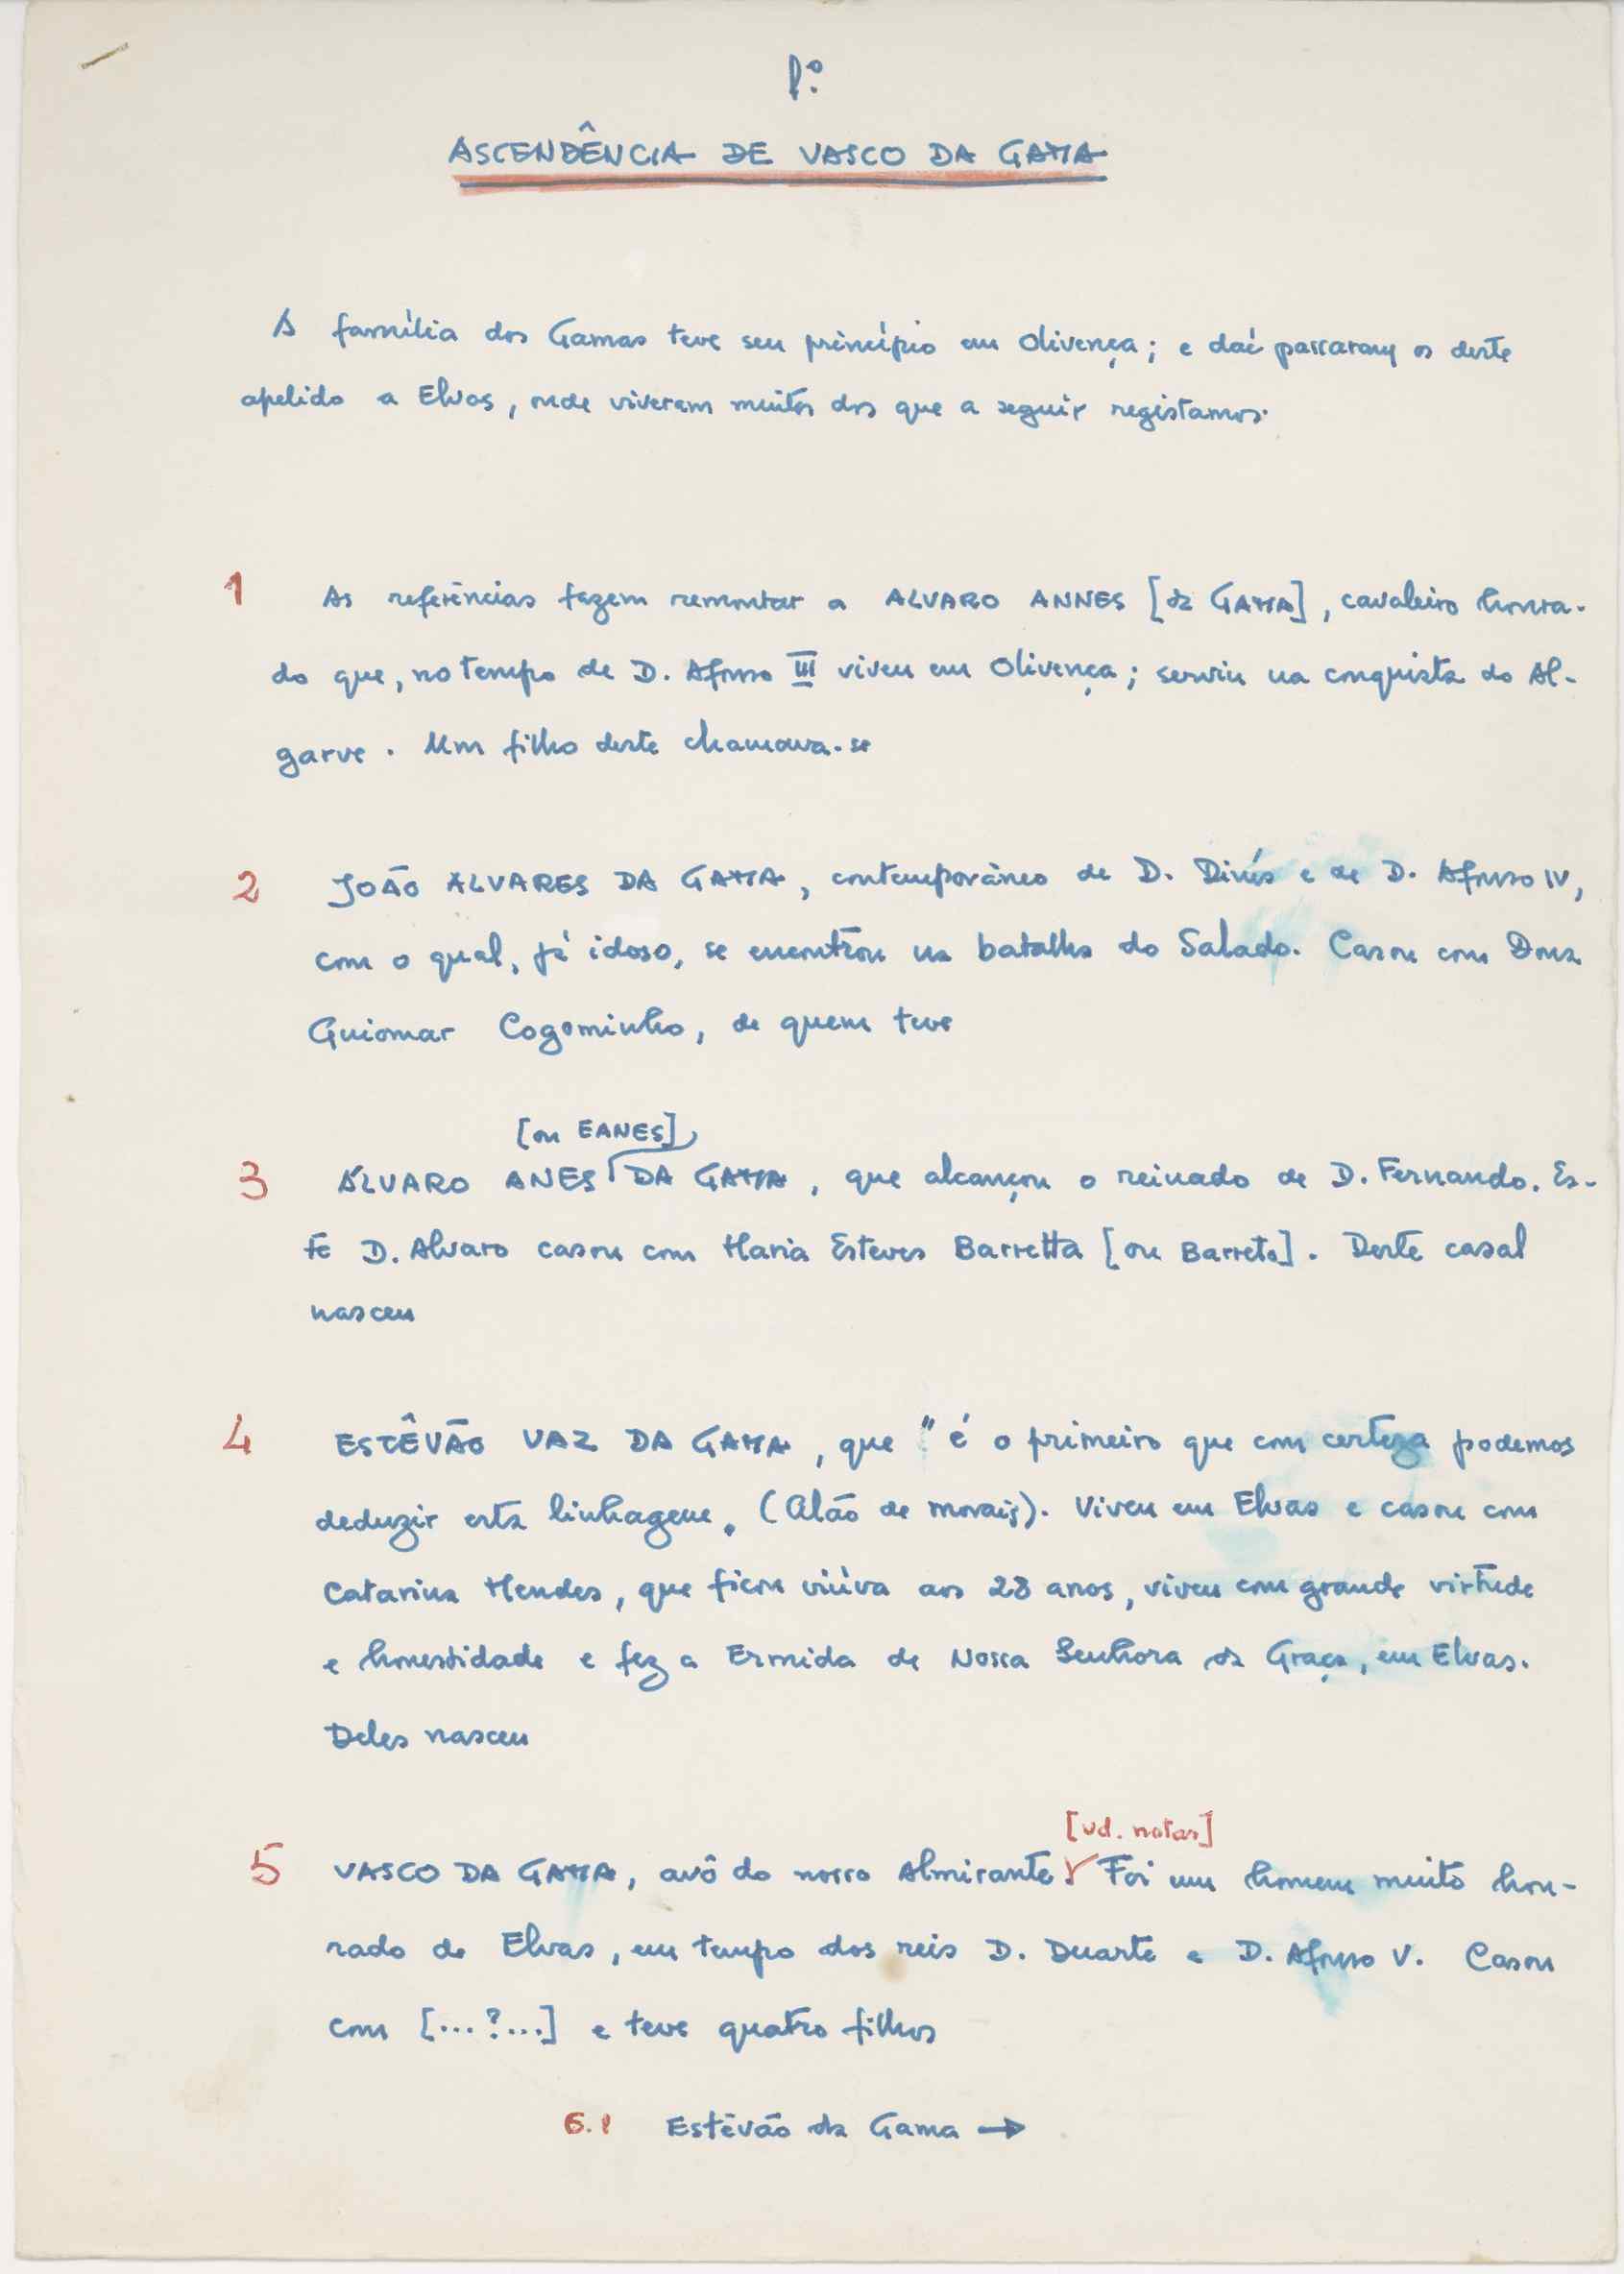 1º
ASCENDÊNCIA DE VASCO DA GAMA
A família dos Gamas teve seu princípio em Olivença; e daí passaram os deste
apelido a Elvas, onde viveram muitos dos que a seguir registamos.
1 As referências fazem remontar a ALVARO ANNES [da GAMA], cavaleiro honra-
do que, no tempo de D. Afonso III viveu em Olivença; serviu na conquista do Al-
garve. Um filho deste chamava-se
2 JOÃO ÁLVARES DA GAMA, contemporâneo de D. Dinis e de D. Afonso IV,
com o qual, já idoso, se encontrou na batalha do Salado. Casou com Dona
Guiomar Cogominho, de quem teve
[ou EANES]
3 ÁLVARO ANES DA GAMA, que alcançou o reinado de D. Fernando. Es-
te D. Alvaro casou com Maria Esteves Barretta [ou Barreto]. Deste casal
nasceu
4 ESTÊVÃO VAZ DA GAMA, que "é o primeiro que com certeza podemos
deduzir esta linhagem. (Alão de Morais). Viveu em Elvas e casou com
Catarina Mendes, que ficou viúva aos 28 anos, viveu com grande virtude
e honestidade e fez a Ermida de Nossa Senhora da Graça, em Elvas.
Deles nasceu
[vd. notas]
5 VASCO DA GAMA, avô do nosso Almirante. Foi um homem muito hon-
rado de Elvas, em tempo dos reis D. Duarte e D. Afonso V. Casou
com [...?...] e teve quatro filhos
6.1 Estêvão da Gama →